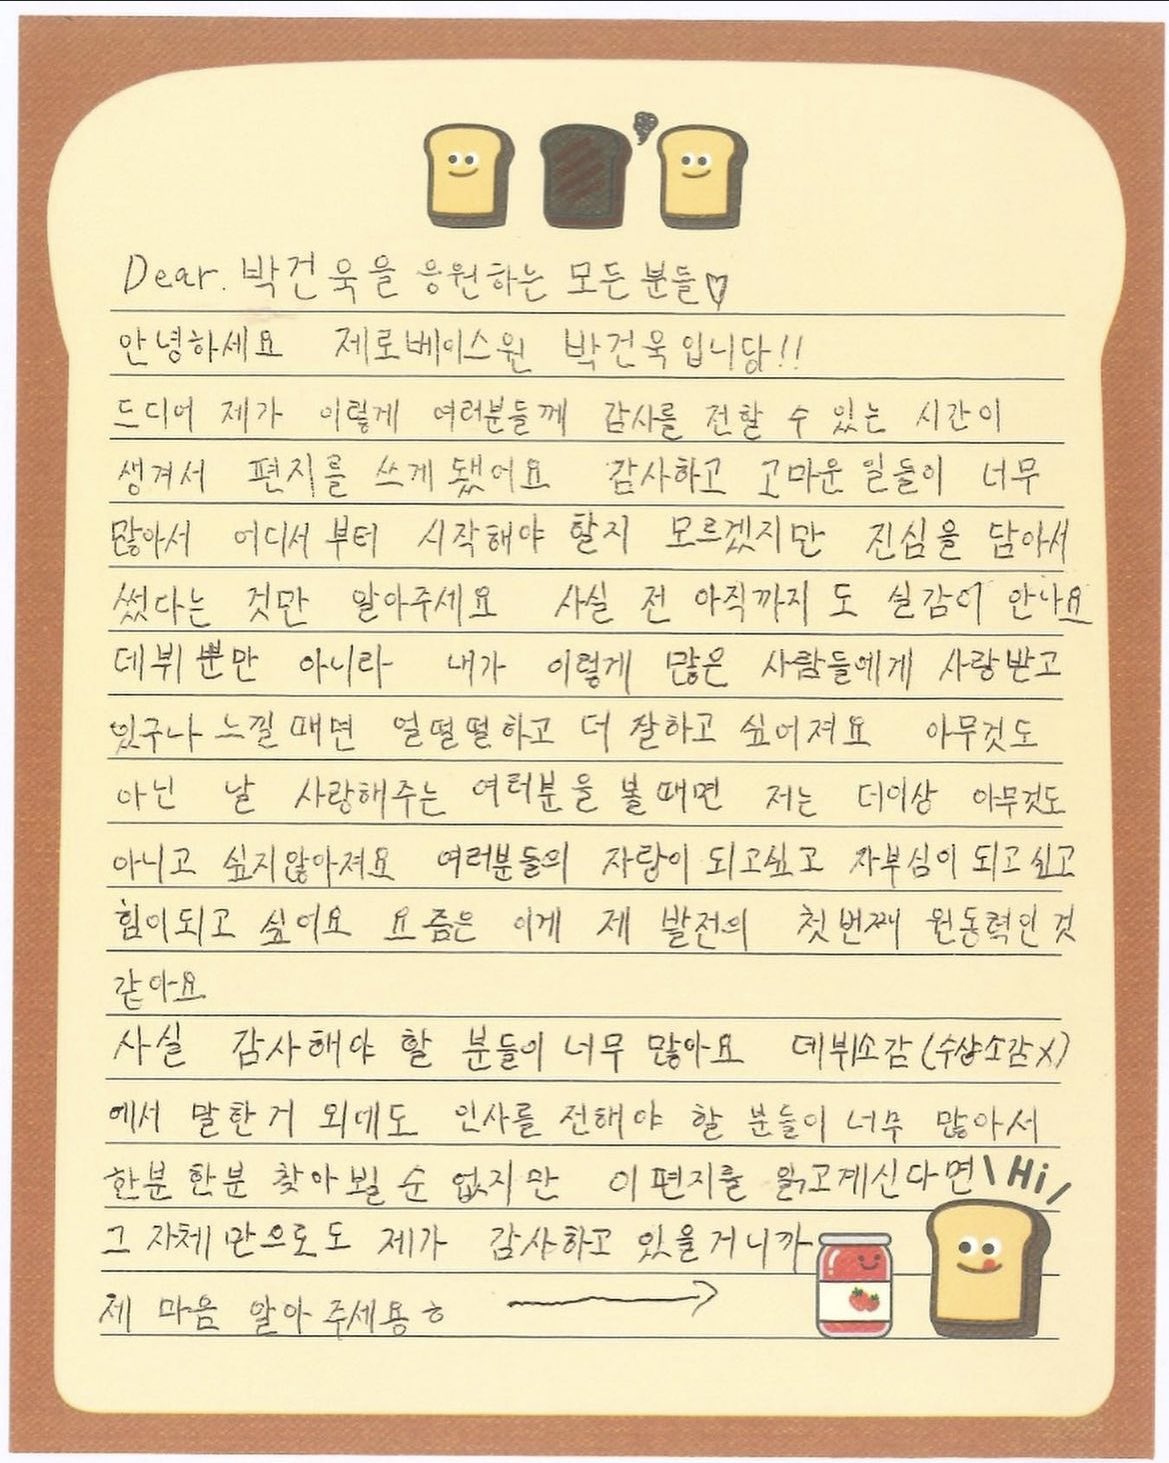 Dear. 박건욱을 응원하는 모든 분들♡
안녕하세요 제로베이스원 박건욱입니닷!!
드디어 제가 이렇게 여러분들께 감사를 전할 수 있는 시간이
생겨서 편지를 쓰게 됐어요 감사하고 고마운 일들이 너무
많아서 어디서부터 시작해야 할지 모르겠지만 진심을 담아서
썼다는 것만 알아주세요 사실 전 아직까지도 실감이 안나요
데뷔뿐만 아니라 내가 이렇게 많은 사람들에게 사랑받고
있구나 느낄때면 얼떨떨하고 더 잘하고 싶어져요 아무것도
아닌 날 사랑해주는 여러분을 볼때면 저는 더이상 아무것도
아니고 싶지않아져요 여러분들의 자랑이 되고싶고 자부심이 되고싶고
힘이되고 싶어요 요즘은 이게 제 발전의 첫번째 원동력인 것
같아요
사실 감사해야 할 분들이 너무 많아요 데뷔소감(수상소감X)
에서 말한거 외에도 인사를 전해야 할 분들이 너무 많아서
한분 한분 찾아뵐 순 없지만 이 편지를 읽고계신다면
\Hi/
그 자체만으로도 제가 감사하고 있을거니까
제 마음 알아주세용ㅎ →